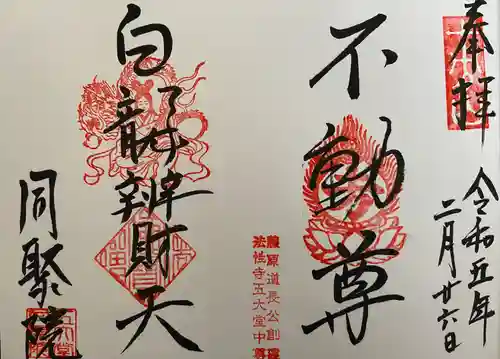 奉拝
令和五年
二月廿六日
不動尊
藤原道長公創建
法性寺五大堂中尊
白龍辨財天
同聚院